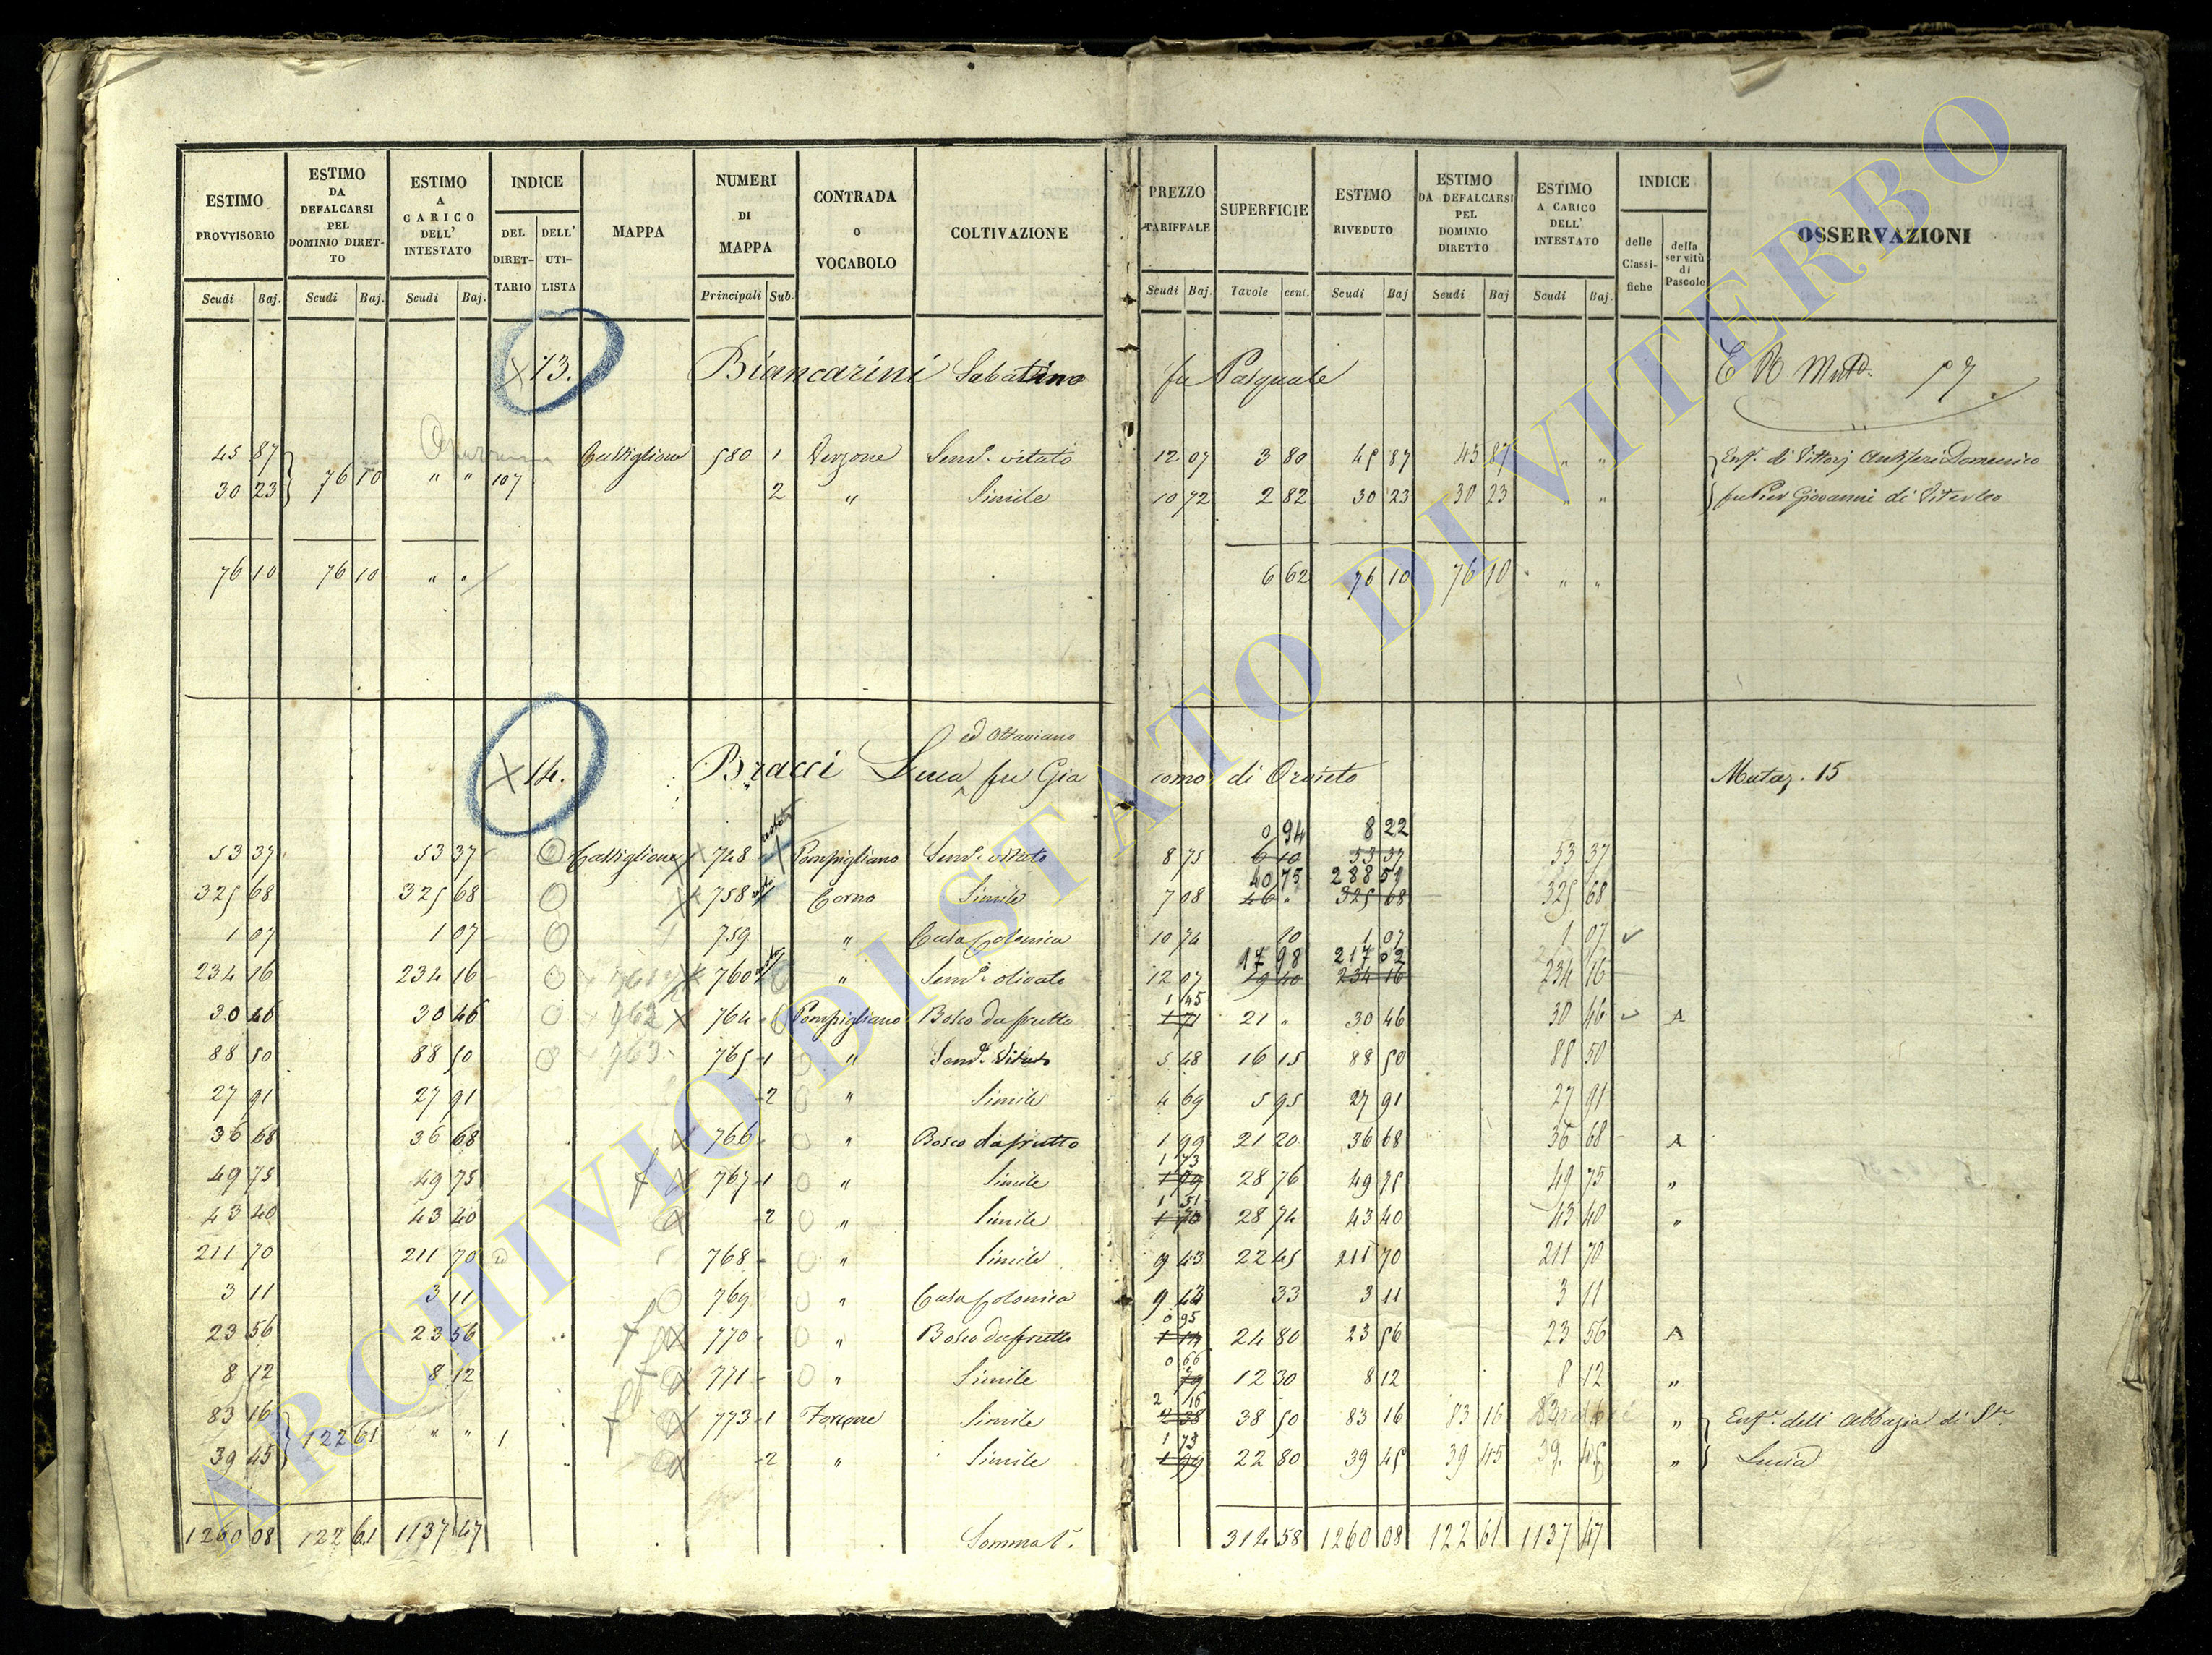 ESTIMO PROVVISORIO Scudi Baj.
ESTIMO DA DEFALCARSI PEL DOMINIO DIRET- TO Scudi Baj.
ESTIMO A CARICO DELL' INTESTATO Scudi Baj.
INDICE DEL DIRET- TARIO DELL' UTI- LISTA
MAPPA
NUMERI DI MAPPA Principali Sub.
CONTRADA O VOCABOLO
COLTIVAZIONE
PREZZO TARIFFALE Scudi Baj.
SUPERFICIE Tavole cent.
ESTIMO RIVEDUTO Scudi Baj
ESTIMO DA DEFALCARSI PEL DOMINIO DIRETTO Scudi Baj
ESTIMO A CARICO DELL' INTESTATO Scudi Baj.
INDICE delle Classi- fiche della servitù di Pascolo
OSSERVAZIONI
13. Biancarini Sabatino fu Pasquale
45 87 76 10 " " 107 Castiglione 580 1 Semve. vitato 12 07 3 80 45 87 45 87 " " Enfa. di Vittorj Domenico
30 23 2 " Simile 10 72 2 82 30 23 30 23 " " Giovanni di Viterbo
76 10 76 10 " " 6 62 76 10 76 10 " "
ed Ottaviano
14. Bracci Luca fu Gia como di Orvieto Mutaz. 15
0 94 8 22
53 37 53 37 Castiglione 748 Pompigliano Semve. vitato 8 75 6 10 53 37 53 37
40 75 288 51
325 68 325 68 758 Corno Simile 7 08 46 " 325 68 325 68
1 07 1 07 759 " Casa Colonica 10 74 10 1 07 1 07
17 98 217 02
234 16 234 16 760 " Semve. olivato 12 07 19 40 234 16 234 16
1 45
30 46 30 46 762 764 Pompigliano Bosco da frutto 1 71 21 " 30 46 30 46 A
88 50 88 50 763 765 1 " Semve. Vitato 5 48 16 15 88 50 88 50
27 91 27 91 2 " Simile 4 69 5 95 27 91 27 91
36 68 36 68 766 " Bosco da frutto 1 99 21 20 36 68 36 68 A
1 73
49 75 49 75 767 1 " Simile 28 76 49 75 49 75 "
1 51
43 40 43 40 2 " Simile 1 70 28 74 43 40 43 40 "
211 70 211 70 768 " Simile 9 43 22 45 211 70 211 70
3 11 3 11 769 " Casa Colonica 9 43 33 3 11 3 11
0 95
23 56 23 56 770 " Bosco da frutto 24 80 23 56 23 56 A
0 66
8 12 8 12 771 " Simile 79 12 30 8 12 8 12 "
2 16
83 16 122 61 " " 1 773 1 Simile 2 38 38 50 83 16 83 16 " Enfa. dell' Abbazia di Sta.
1 73
39 45 2 " Simile 1 99 22 80 39 45 39 45 39 45 " Lucia
1260 08 122 61 1137 47 314 58 1260 08 122 61 1137 47
ARCHIVIO DI STATO DI VITERBO